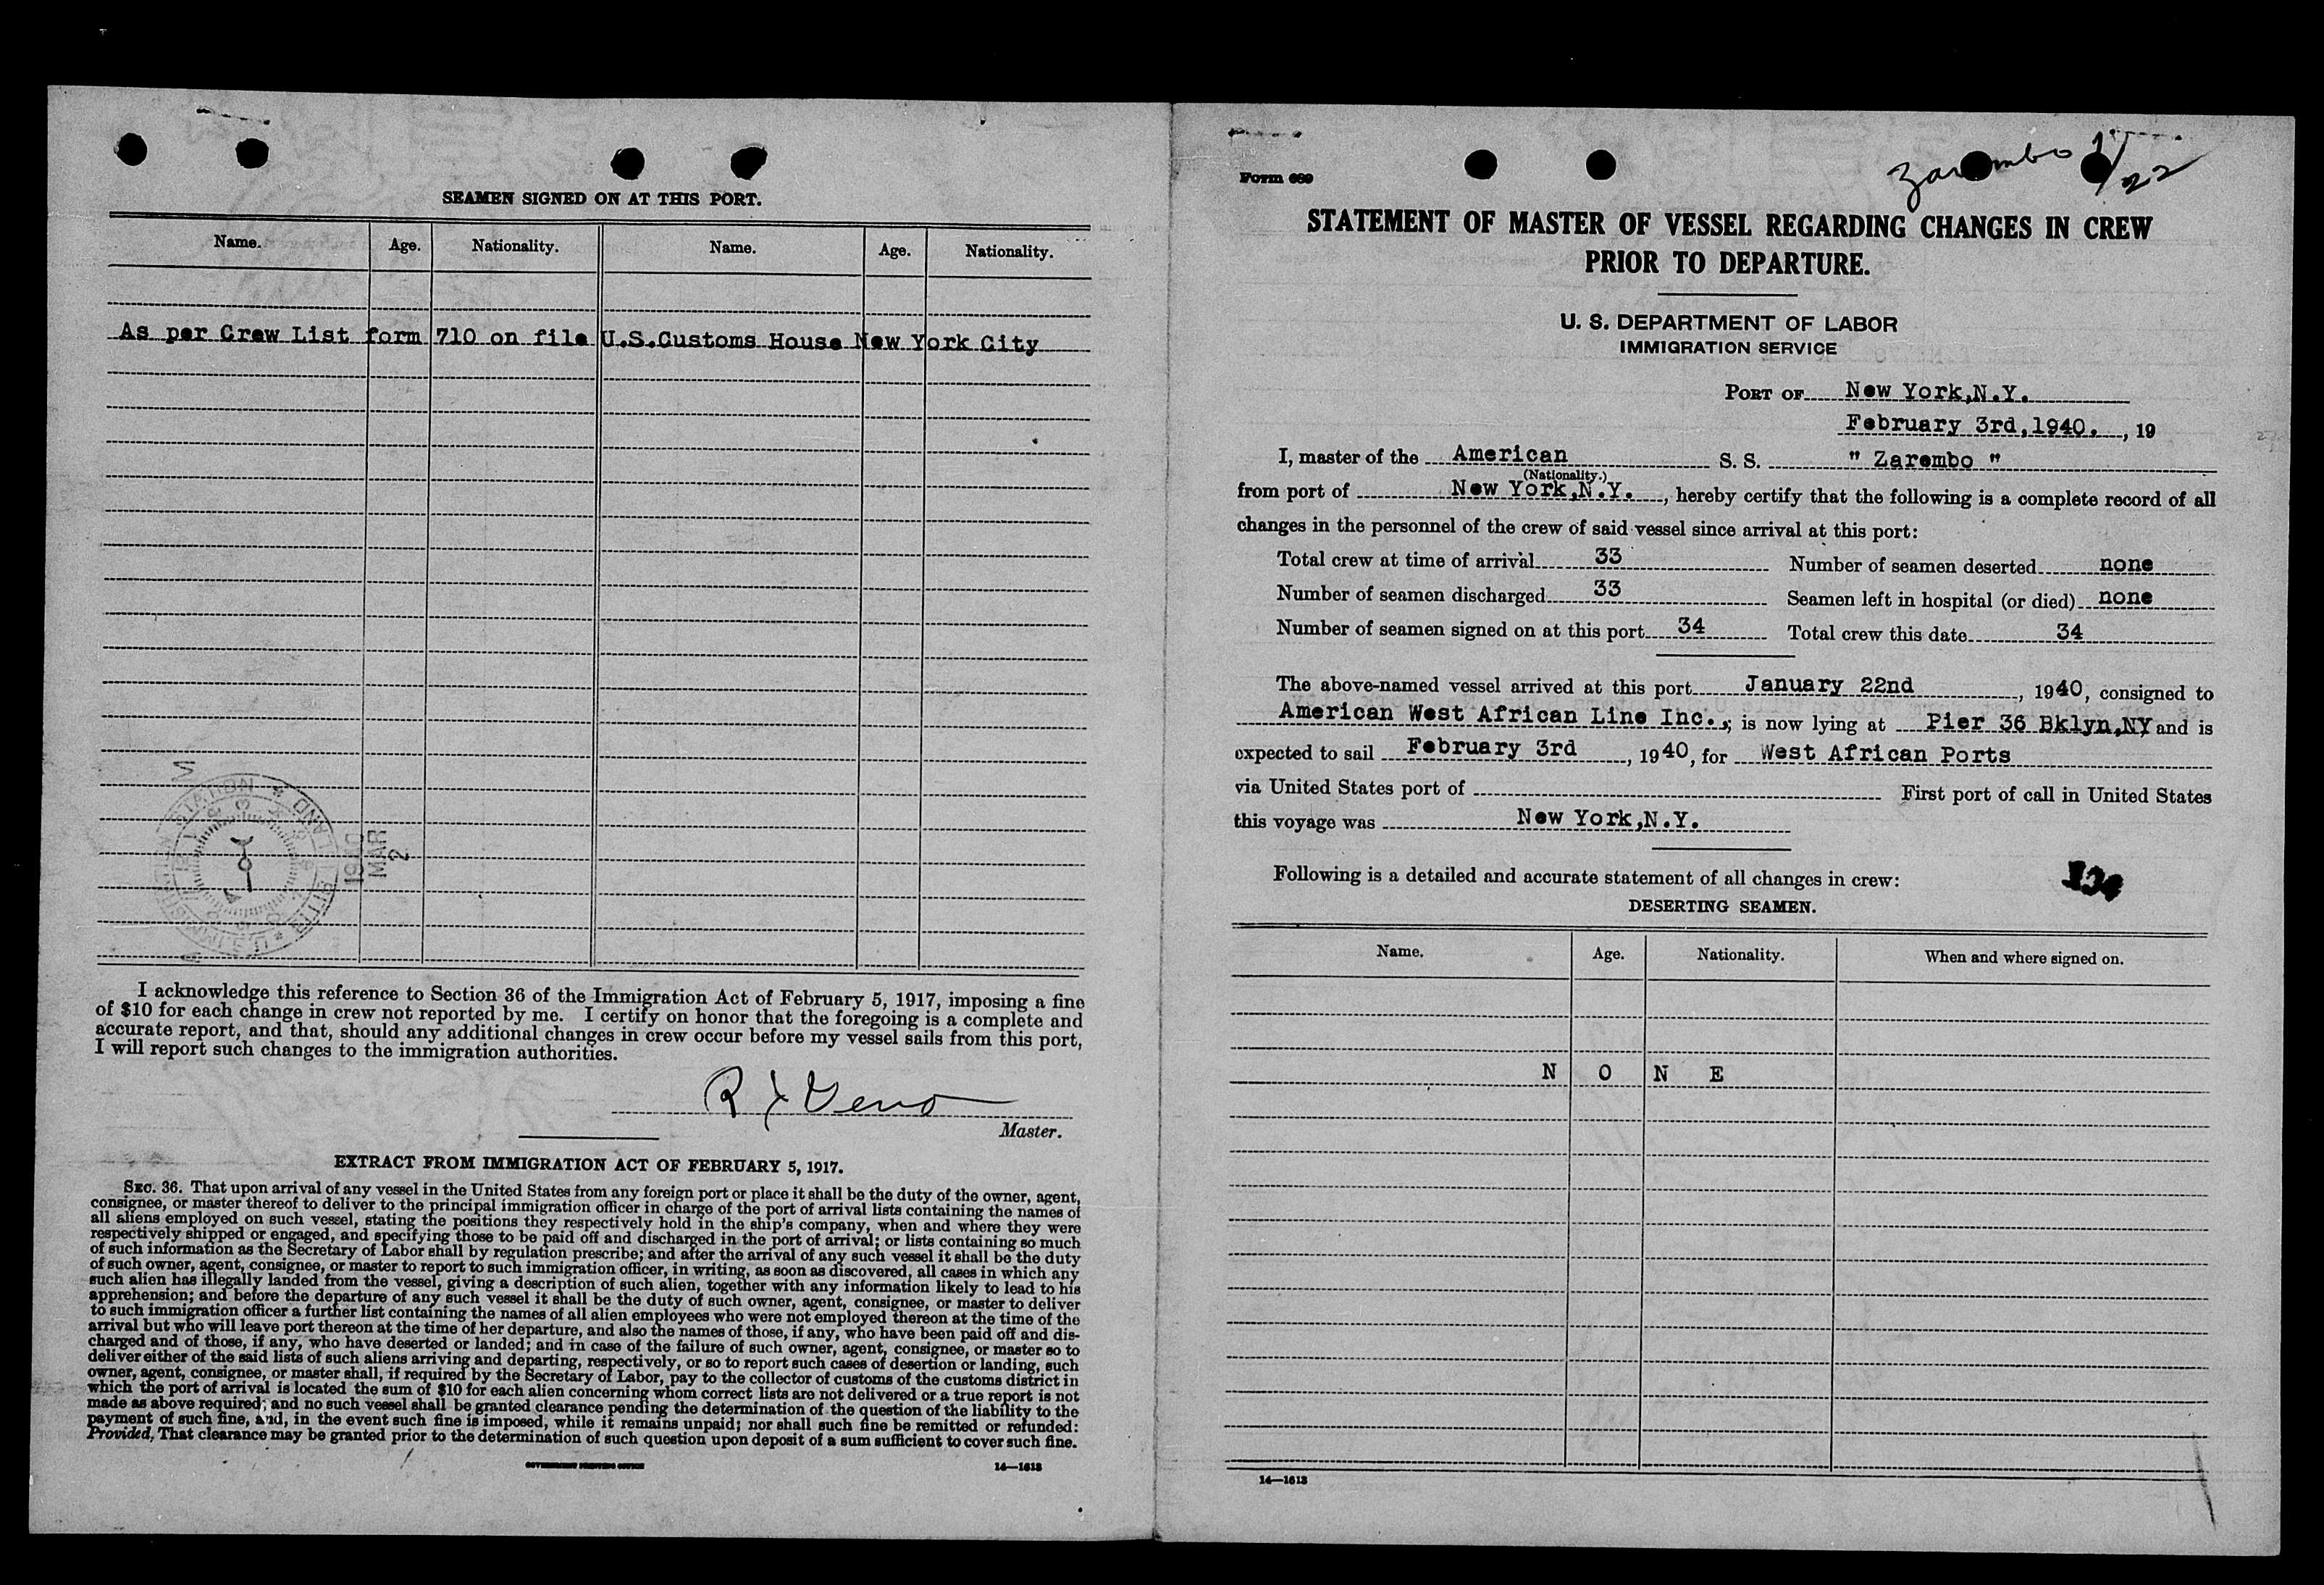 SEAMEN SIGNED ON AT THIS PORT.
Name. Age. Nationality. Name. Age. Nationality.
As per Crew List form 710 on file U.S.Customs House New York City
1940
MAR
2
I acknowledge this reference to Section 36 of the Immigration Act of February 5, 1917, imposing a fine
of $10 for each change in crew not reported by me. I certify on honor that the foregoing is a complete and
accurate report, and that, should any additional changes in crew occur before my vessel sails from this port,
I will report such changes to the immigration authorities.
Master.
EXTRACT FROM IMMIGRATION ACT OF FEBRUARY 5, 1917.
SEC. 36. That upon arrival of any vessel in the United States from any foreign port or place it shall be the duty of the owner, agent,
consignee, or master thereof to deliver to the principal immigration officer in charge of the port of arrival lists containing the names of
all aliens employed on such vessel, stating the positions they respectively hold in the ship's company, when and where they were
respectively shipped or engaged, and specifying those to be paid off and discharged in the port of arrival; or lists containing so much
of such information as the Secretary of Labor shall by regulation prescribe; and after the arrival of any such vessel it shall be the duty
of such owner, agent, consignee, or master to report to such immigration officer, in writing, as soon as discovered, all cases in which any
such alien has illegally landed from the vessel, giving a description of such alien, together with any information likely to lead to his
apprehension; and before the departure of any such vessel it shall be the duty of such owner, agent, consignee, or master to deliver
to such immigration officer a further list containing the names of all alien employees who were not employed thereon at the time of the
arrival but who will leave port thereon at the time of her departure, and also the names of those, if any, who have been paid off and dis-
charged and of those, if any, who have deserted or landed; and in case of the failure of such owner, agent, consignee, or master so to
deliver either of the said lists of such aliens arriving and departing, respectively, or so to report such cases of desertion or landing, such
owner, agent, consignee, or master shall, if required by the Secretary of Labor, pay to the collector of customs of the customs district in
which the port of arrival is located the sum of $10 for each alien concerning whom correct lists are not delivered or a true report is not
made as above required; and no such vessel shall be granted clearance pending the determination of the question of the liability to the
payment of such fine, and, in the event such fine is imposed, while it remains unpaid; nor shall such fine be remitted or refunded:
Provided, That clearance may be granted prior to the determination of such question upon deposit of a sum sufficient to cover such fine.
GOVERNMENT PRINTING OFFICE 14—1613
Zarembo 1/22
Form 689
STATEMENT OF MASTER OF VESSEL REGARDING CHANGES IN CREW
PRIOR TO DEPARTURE.
U. S. DEPARTMENT OF LABOR
IMMIGRATION SERVICE
PORT OF New York,N.Y.
February 3rd,1940. , 19
I, master of the American S. S. " Zarembo "
(Nationality.)
from port of New York,N.Y. , hereby certify that the following is a complete record of all
changes in the personnel of the crew of said vessel since arrival at this port:
Total crew at time of arrival 33 Number of seamen deserted none
Number of seamen discharged 33 Seamen left in hospital (or died) none
Number of seamen signed on at this port 34 Total crew this date 34
The above-named vessel arrived at this port January 22nd , 1940, consigned to
American West African Line Inc., ; is now lying at Pier 36 Bklyn,NY and is
expected to sail February 3rd , 1940, for West African Ports
via United States port of First port of call in United States
this voyage was New York,N.Y.
Following is a detailed and accurate statement of all changes in crew:
DESERTING SEAMEN.
Name. Age. Nationality. When and where signed on.
N O N E
14—1613